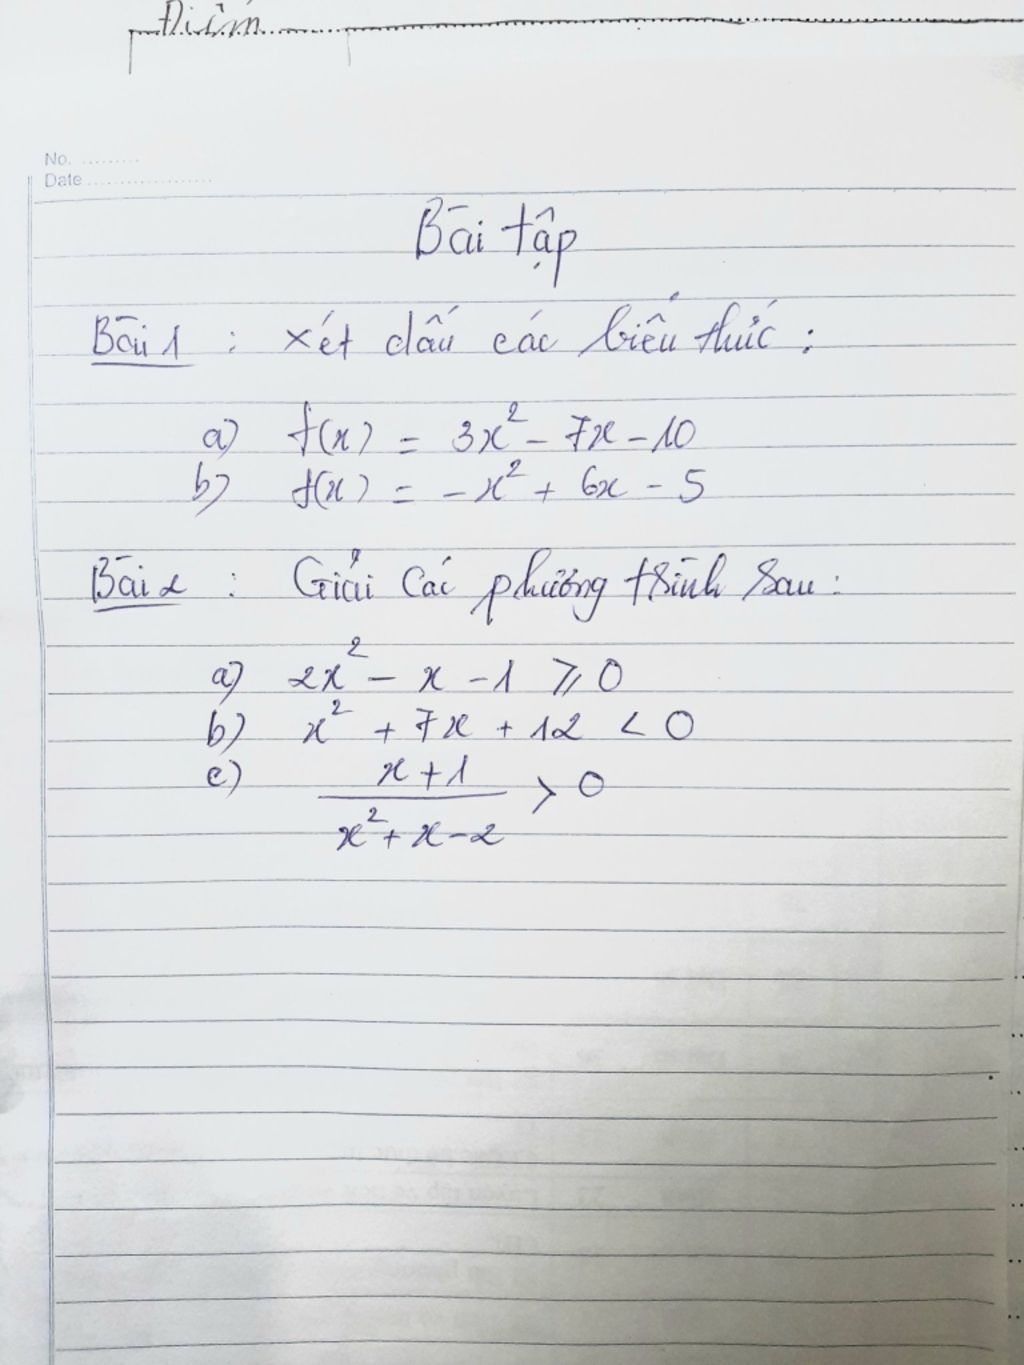 Điểm
No. .........
Date ...................
Bài tập
Bài 1 : xét dấu các biểu thức :
a) f(x) = 3x² - 7x - 10
b) f(x) = -x² + 6x - 5
Bài 2 : Giải Các phương trình sau :
a) 2x² - x - 1 ⩾ 0
b) x² + 7x + 12 < 0
c) x + 1 > 0
x² + x - 2